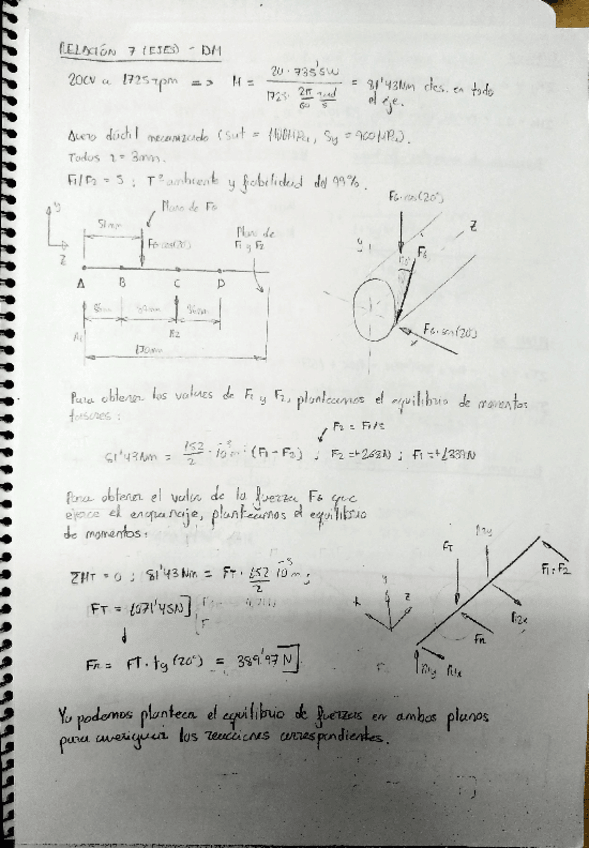 RELACIÓN 7 (EJES) - DM
20CV a 1725 rpm => M = 20·735'5W / 1725· 2π/60 rad/s = 81'43Nm ctes. en todo el eje.
Acero dúctil mecanizado (Sut = MPa, Sy = MPa).
Todos r = 3mm.
F1/F2 = 5 ; Tª ambiente y fiabilidad del 99%.
Plano de FG
FG·cos(20°)
51mm
FG cos(20°)
Plano de F1 y F2
y
z
Z
FG
A B C D
R1
R2
FG·sen(20°)
Para obtener los valores de F1 y F2, planteamos el equilibrio de momentos
torsores:
F2 = F1/5
81'43Nm = 152/2 ·10⁻³m·(F1-F2) ; F2=+268N ; F1=+1339N
Para obtener el valor de la fuerza FG que
ejerce el engranaje, planteamos el equilibrio
de momentos:
ΣMT = 0 ; 81'43Nm = FT· 152/2 10⁻³m ;
FT = 1071'45N
Fr = FT·tg(20°) = 389'97N
FT
R2y
F1+F2
R2x
Fr
R1y
R1x
y
x
z
Ya podemos plantear el equilibrio de fuerzas en ambos planos
para averiguar las reacciones correspondientes.